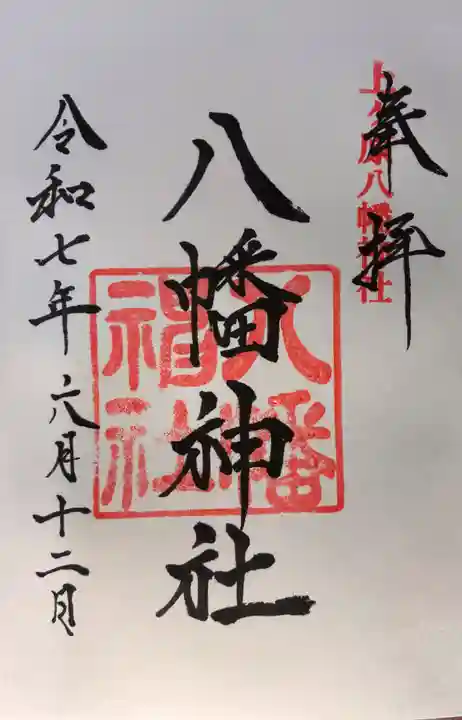 奉拝
八幡神社
八幡神社
八幡
神社
令和七年 六月十二日